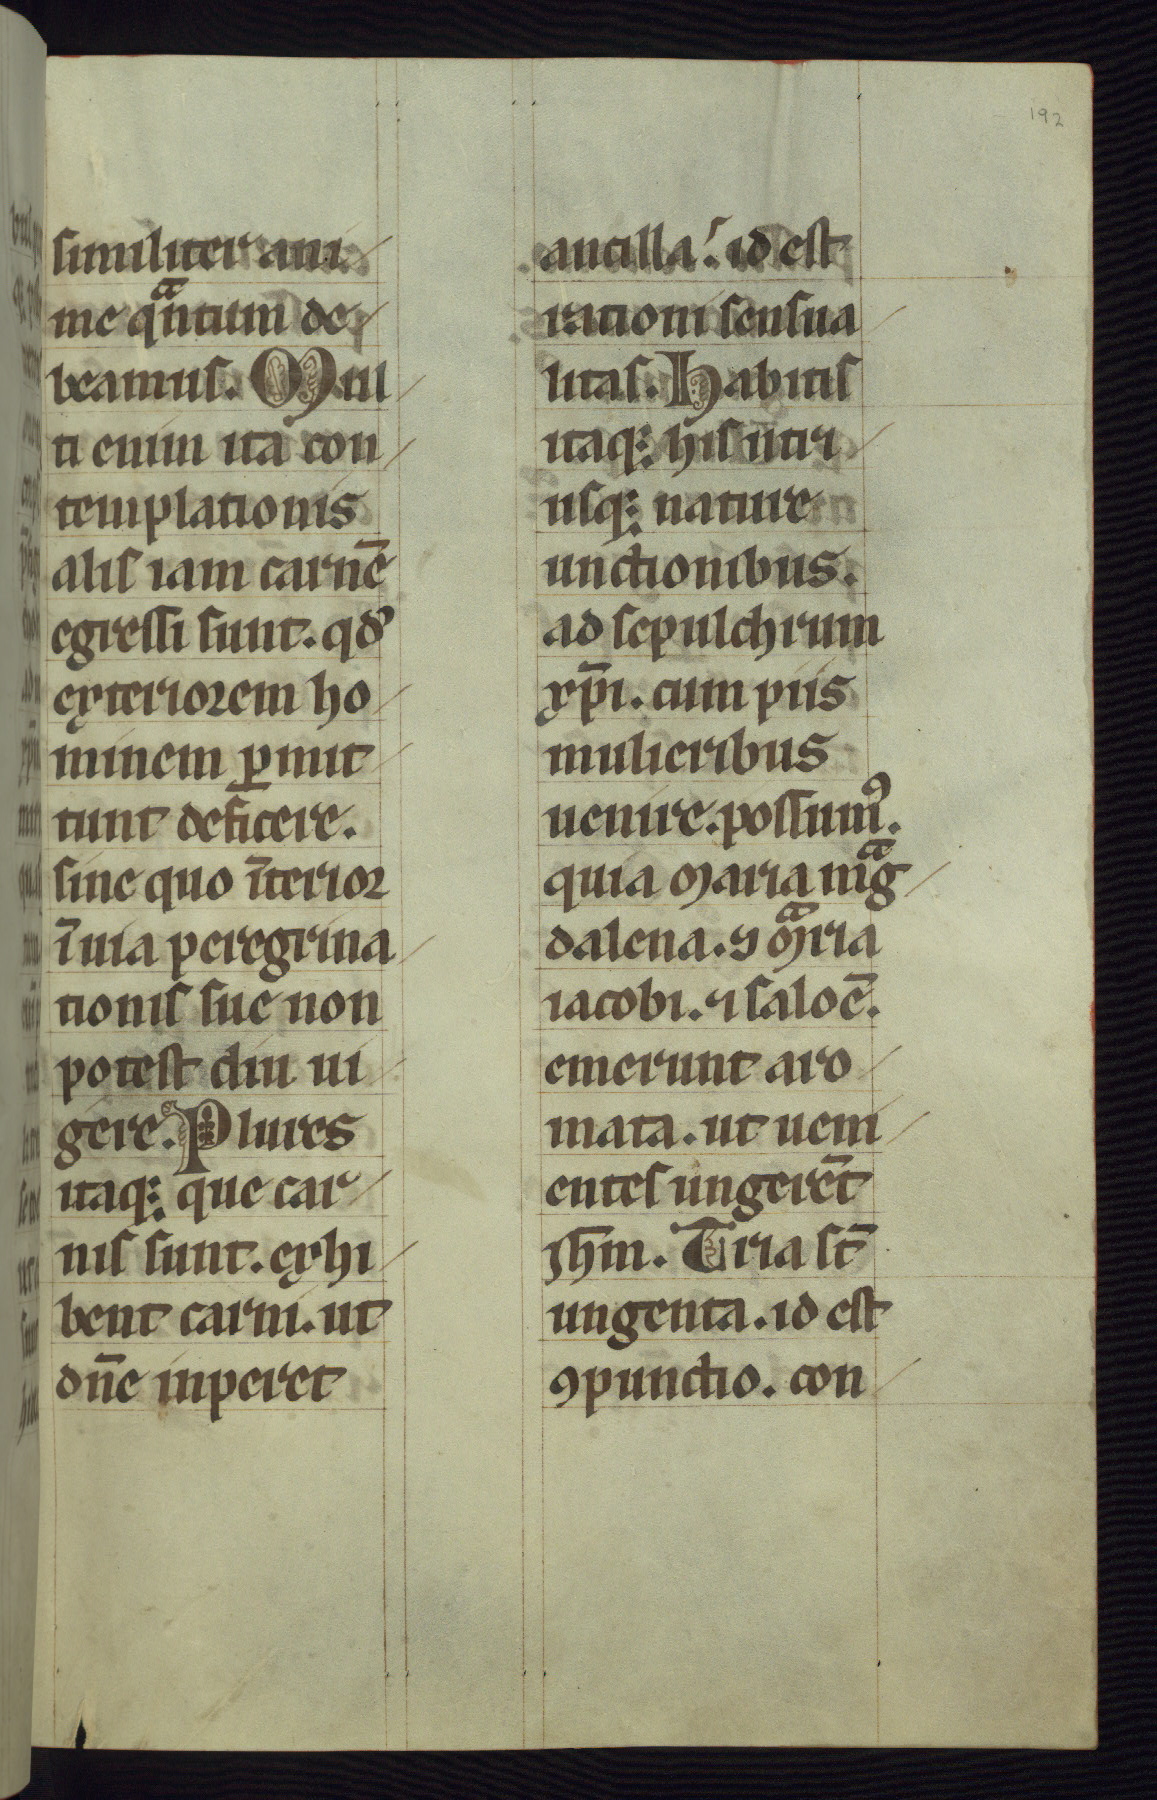 192
similiter ani
me qͣntum de
beamus. Mul
ti enim ita con
templationis
alis iam carnē
egressi sunt. qd᾽
exteriorem ho
minem ꝑmit
tunt deficere.
sine quo īterior
ī uia peregrina
tionis sue non
potest diu ui
gere. Plures
itaq; que car
nis sunt. exhi
bent carni. ut
dn̄e inperet
ancilla. id est
rationi sensua
litas. Habitis
itaq; his utri
usq; nature
unctionibus.
ad sepulchrum
xp̄i. cum piis
mulieribus
uenire. possumꝰ.
quia maria mͣg
dalena. ⁊ mͣria
iacobi. ⁊ saloē.
emerunt aro
mata. ut ueni
entes ungerēt
ih̄m. Tria st̄
ungenta. id est
ꝯpunctio. con